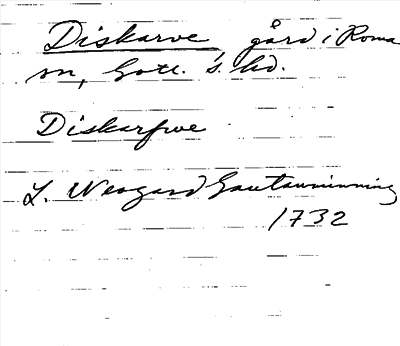 Diskarve gård i Roma
sn, Gotl. s. hd.
Diskarfwe
L. Neogard Gautauminning
1732